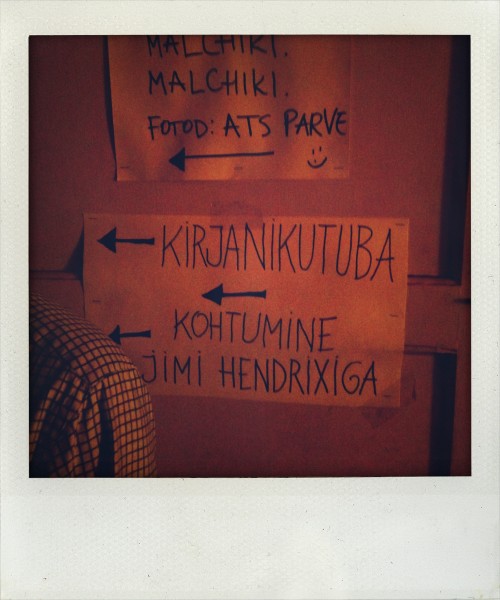 MALCHIKI.
MALCHIKI.
FOTOD: ATS PARVE
KIRJANIKUTUBA
KOHTUMINE
JIMI HENDRIXIGA